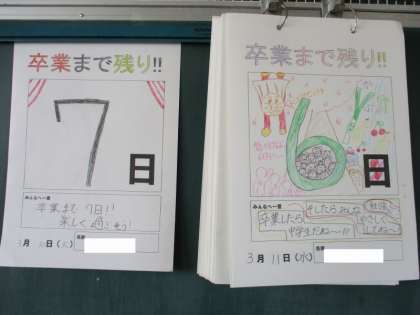 卒業まで残り!!
7
日
みんなへ一言
卒業まで 7日!!
楽しく過ごそう!
3月10日(火)
卒業まで残り!!
6
日
みんなへ一言
卒業したら
中学生だね〜!!
そしたらみんな
勉強
やさしく
してね〜
3月11日(水)